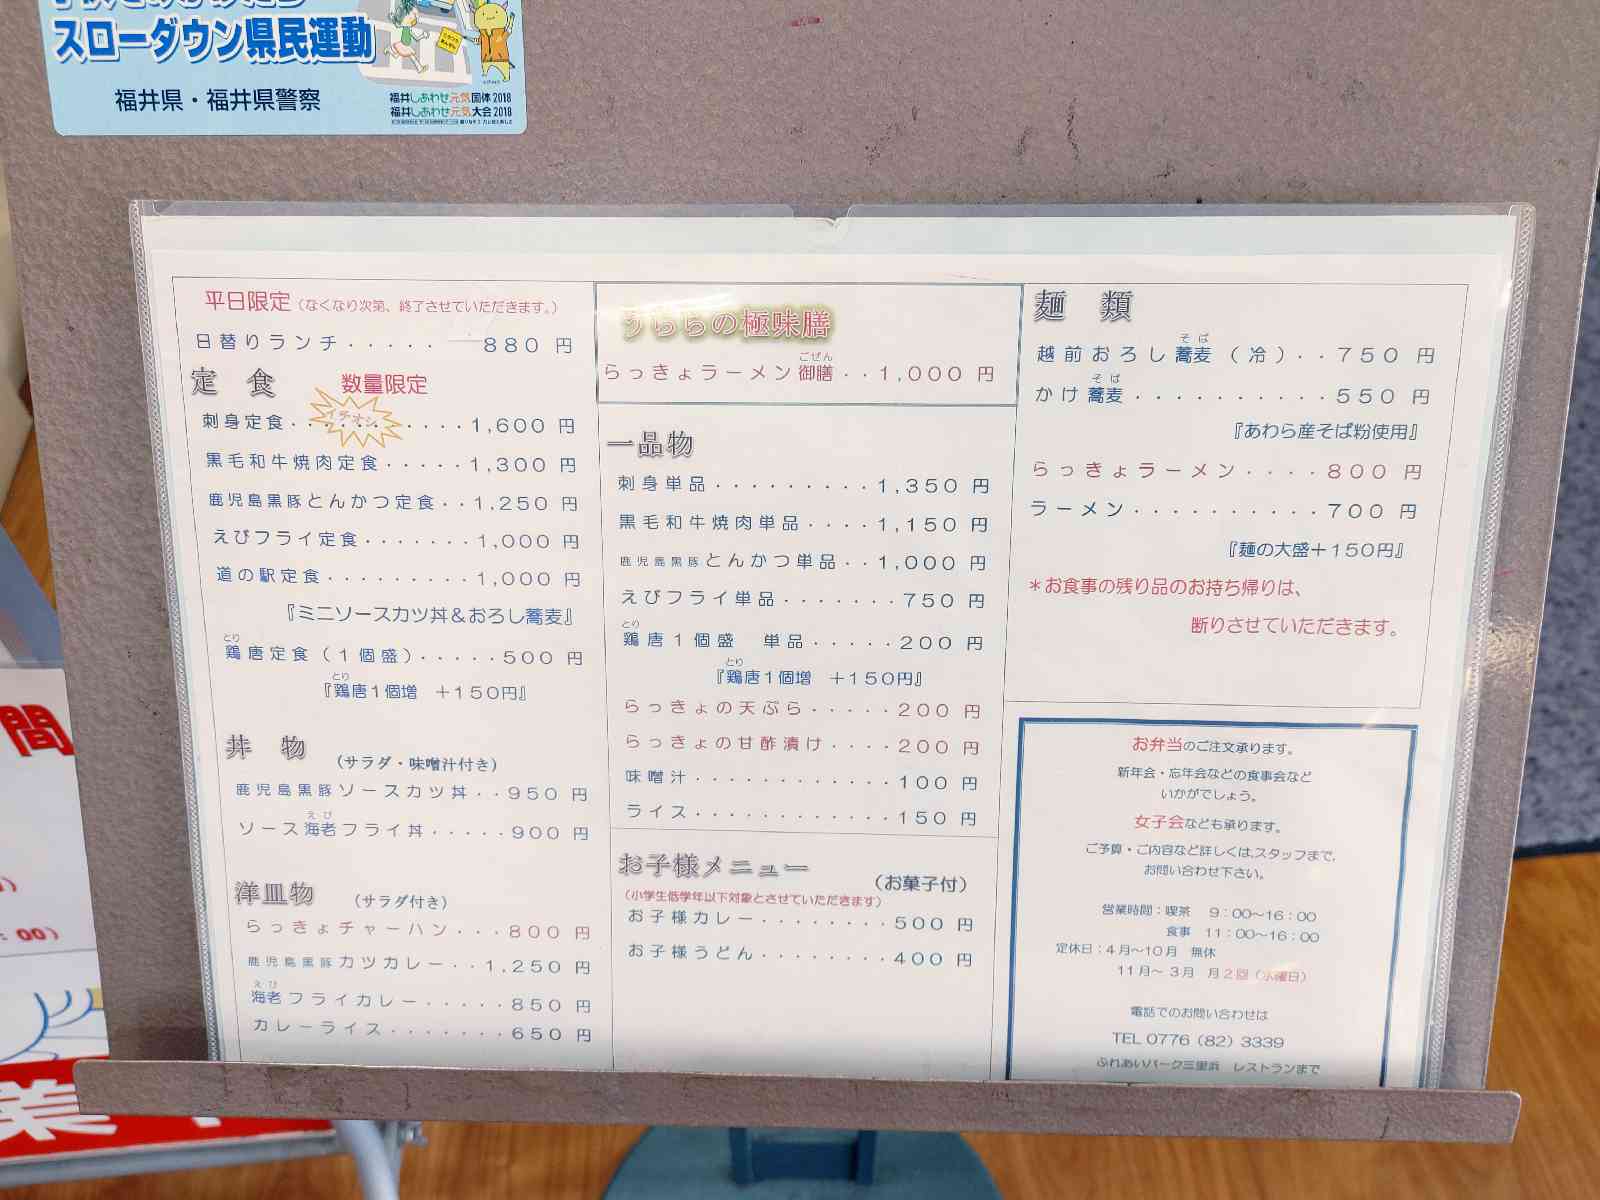 スローダウン県民運動
福井県・福井県警察
福井しあわせ元気国体2018
福井しあわせ元気大会2018
平日限定（なくなり次第、終了させていただきます。）
日替りランチ・・・・・ 880 円
定 食 数量限定
イチオシ
刺身定食・・・・・・・・・1,600 円
黒毛和牛焼肉定食・・・・・1,300 円
鹿児島黒豚とんかつ定食・・1,250 円
えびフライ定食・・・・・・・1,000 円
道の駅定食・・・・・・・・・1,000 円
『ミニソースカツ丼＆おろし蕎麦』
とり
鶏唐定食（１個盛）・・・・・500 円
とり
『鶏唐１個増 ＋１５０円』
丼 物 （サラダ・味噌汁付き）
鹿児島黒豚ソースカツ丼・・950 円
えび
ソース海老フライ丼・・・・・900 円
洋皿物 （サラダ付き）
らっきょチャーハン・・・800 円
鹿児島黒豚カツカレー・・1,250 円
えび
海老フライカレー・・・・・850 円
カレーライス・・・・・・・650 円
うららの極味膳
ごぜん
らっきょラーメン御膳・・1,000 円
一品物
刺身単品・・・・・・・・・1,350 円
黒毛和牛焼肉単品・・・・1,150 円
鹿児島黒豚とんかつ単品・・1,000 円
えびフライ単品・・・・・・・750 円
とり
鶏唐１個盛 単品・・・・・200 円
とり
『鶏唐１個増 ＋１５０円』
らっきょの天ぷら・・・・・200 円
らっきょの甘酢漬け・・・・200 円
味噌汁・・・・・・・・・・・・100 円
ライス・・・・・・・・・・・・150 円
お子様メニュー （お菓子付）
（小学生低学年以下対象とさせていただきます）
お子様カレー・・・・・・・・500 円
お子様うどん・・・・・・・・400 円
麺 類
そば
越前おろし蕎麦（冷）・・750 円
そば
かけ蕎麦・・・・・・・・・・550 円
『あわら産そば粉使用』
らっきょラーメン・・・・800 円
ラーメン・・・・・・・・・・700 円
『麺の大盛＋１５０円』
＊お食事の残り品のお持ち帰りは、
断りさせていただきます。
お弁当のご注文承ります。
新年会・忘年会などの食事会など
いかがでしょう。
女子会なども承ります。
ご予算・ご内容など詳しくは、スタッフまで、
お問い合わせ下さい。
営業時間：喫茶 9：00～16：00
食事 11：00～16：00
定休日：４月～１０月 無休
１１月～３月 月２回（水曜日）
電話でのお問い合わせは
TEL 0776（82）3339
ふれあいパーク三里浜 レストランまで
間
：00）
業